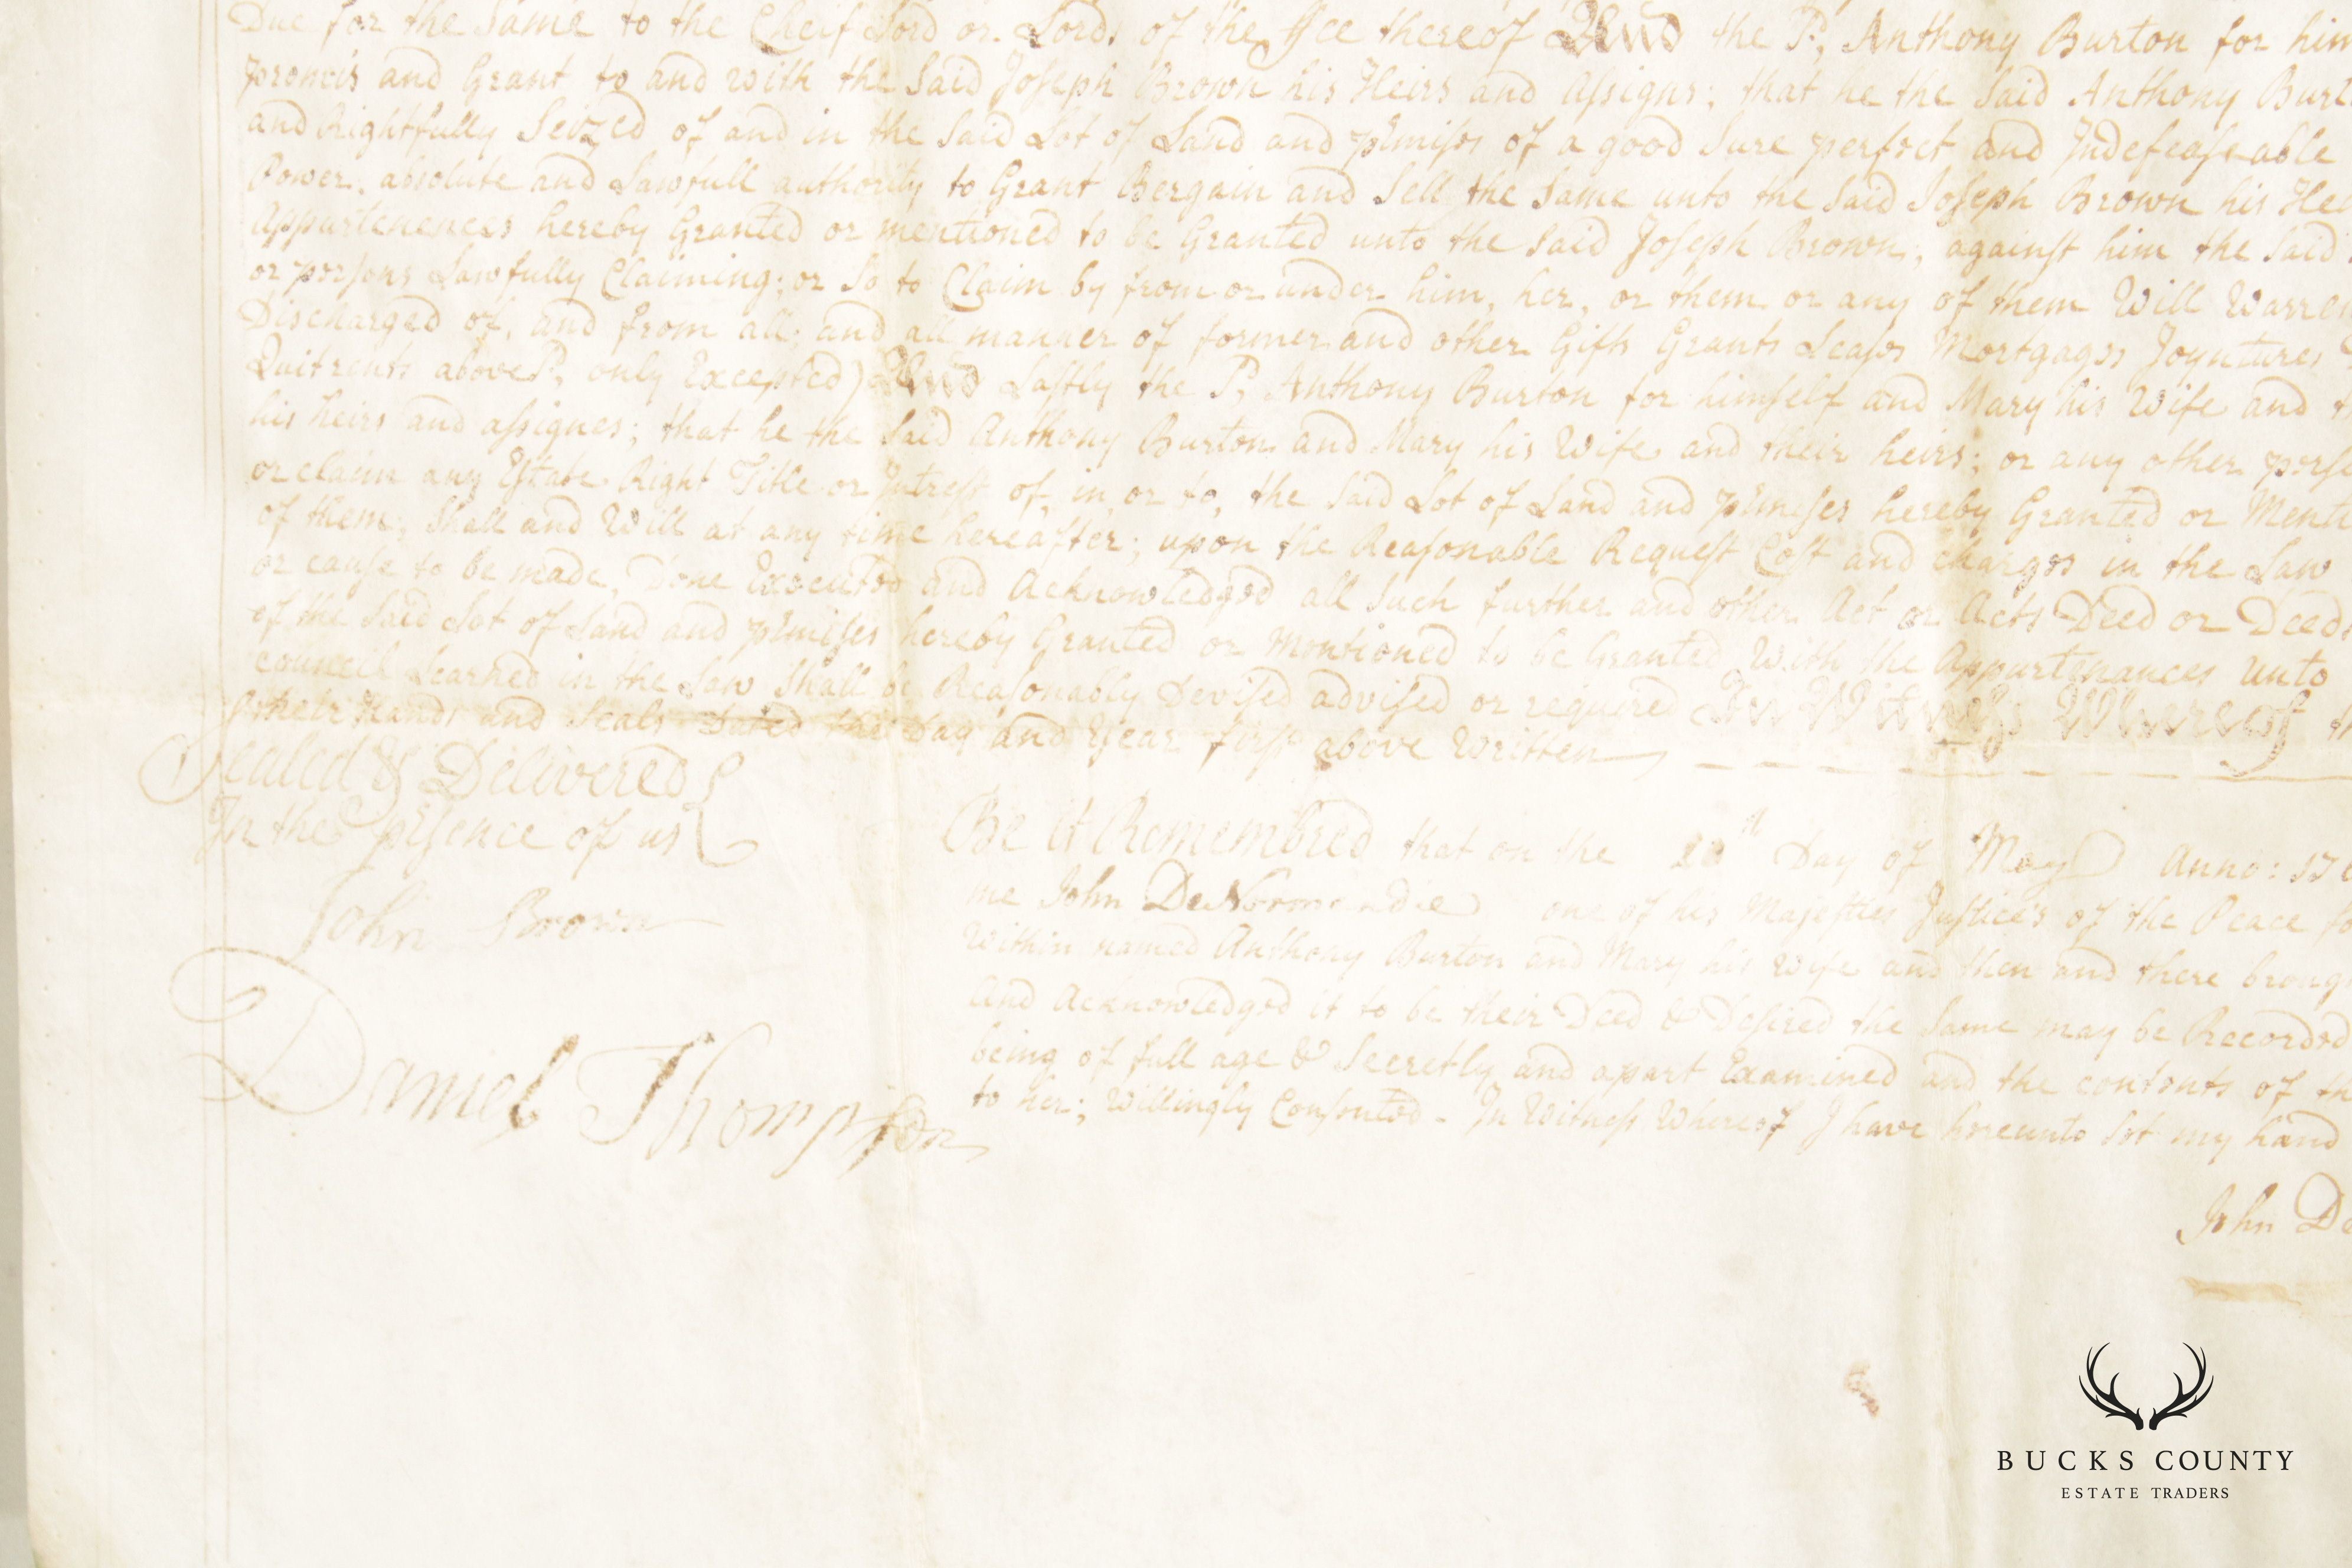 Due for the Same to the Cheif Lord or Lords of the ffee thereof And the Sd. Anthony Burton for him
promis and Grant to and with the Said Joseph Brown his Heirs and assigns; that he the Said Anthony Burt
and Rightfully Seized of and in the Said Lot of Land and p'mises of a good Sure perfect and Indefeaseable
Power, absolute and Lawfull authority to Grant Bergain and Sell the Same unto the Said Joseph Brown his He
Appurtenences hereby Granted or mentioned to be Granted unto the Said Joseph Brown; against him the Said
or persons Lawfully Claiming; or So to Claim by from or under him, her, or them or any of them Will Warren
Discharged of, and from all; and all manner of former and other Gifts Grants Leases Mortgages Joyntures
Quitrents above Sd. only Excepted) And Lastly the Sd. Anthony Burton for himself and Mary his Wife and
his heirs and assignes; that he the Said Anthony Burton and Mary his Wife and their heirs; or any other pers
or claim any Estate Right Title or Intrest of, in, or to, the Said Lot of Land and p'mises hereby Granted or Menti
of them; Shall and Will at any time hereafter; upon the Reasonable Request Cost and charges in the Law
or cause to be made, Done Executed and Acknowledged all Such further and other Act or Acts Deed or Deeds
of the Said Lot of Land and p'mises hereby Granted or Mentioned to be Granted With the Appurtenances unto
councell Learned in the Law Shall be Reasonably Devised advised or required In Witness Whereof
their Hands and Seals Dated the Day and Year first above Written
Sealed & Delivered
In the p'sence of us
John Brown
Daniel Thompson
Be it Remembred that on the 20th Day of May Anno: 17
me John DeNormandie one of his Majesties Justice's of the Peace fo
Within named Anthony Burton and Mary his Wife and then and there broug
and Acknowledged it to be their Deed & Desired the Same may be Recorded
being of full age & Secretly and apart Examined and the contents of th
to her; Willingly Consented - In Witness Whereof I have hereunto Set my hand
John De
BUCKS COUNTY
ESTATE TRADERS